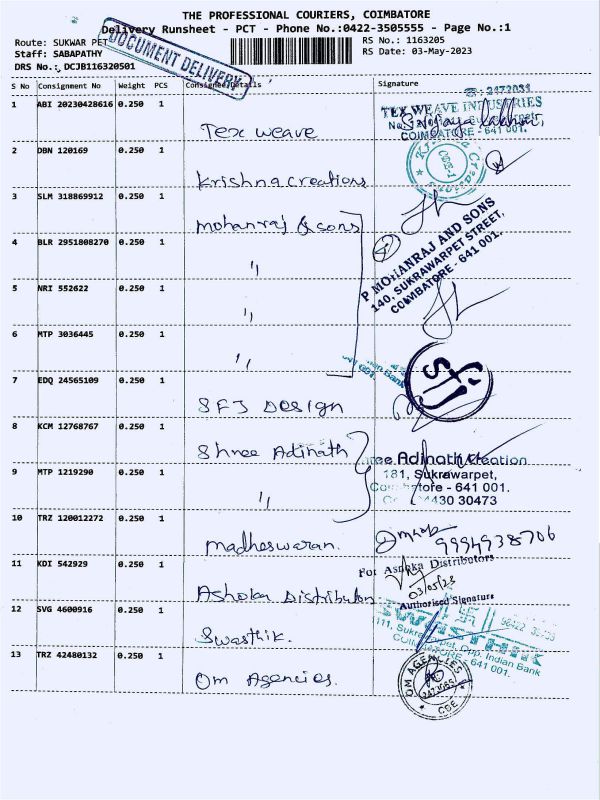 THE PROFESSIONAL COURIERS, COIMBATORE
Delivery Runsheet - PCT - Phone No.:0422-3505555 - Page No.:1
Route: SUKWAR PET
RS No.: 1163205
Staff: SABAPATHY
RS Date: 03-May-2023
DRS No.: DCJB116320501
DOCUMENT DELIVERY
S No Consignment No Weight PCS Consignee Details Signature
1 ABI 20230428616 0.250 1
Tex weave
TEX WEAVE INDUSTRIES
COIMBATORE - 641 001.
2 DBN 120169 0.250 1
Krishna creations
3 SLM 318869912 0.250 1
mohanraj & sons
P MOHANRAJ AND SONS
140, SUKRAWARPET STREET,
COIMBATORE - 641 001.
4 BLR 2951808270 0.250 1
"
5 NRI 552622 0.250 1
"
6 MTP 3036445 0.250 1
"
7 EDQ 24565109 0.250 1
SFJ Design
sfj
8 KCM 12768767 0.250 1
Shree Adinath
Adinath Kreation
181, Sukrawarpet,
- 641 001.
4430 30473
9 MTP 1219290 0.250 1
"
10 TRZ 120012272 0.250 1
madheswaran.
9994938706
11 KDI 542929 0.250 1
Ashoka Distributors
For Ashoka Distributors
03/05/23
Authorised Signature
12 SVG 4600916 0.250 1
Swasthik.
SWASTHIK
111, Sukrawarpet, Opp. Indian Bank
COIMBATORE - 641 001.
13 TRZ 42480132 0.250 1
Om Agencies.
OM AGENCIES
CBE